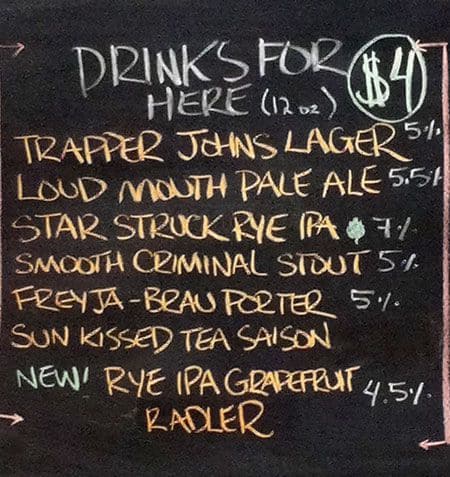 DRINKS FOR $4
HERE (12 oz)
TRAPPER JOHNS LAGER 5%
LOUD MOUTH PALE ALE 5.5%
STAR STRUCK RYE IPA 7%
SMOOTH CRIMINAL STOUT 5%
FREYJA-BRAU PORTER 5%
SUN KISSED TEA SAISON
NEW! RYE IPA GRAPEFRUIT 4.5%
RADLER